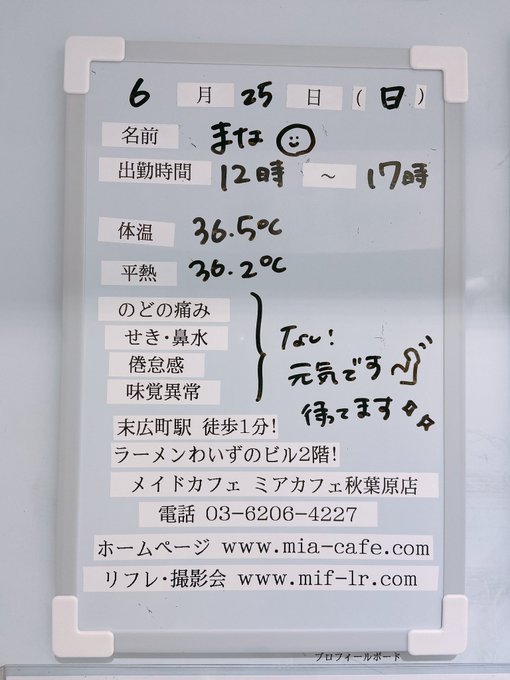 6月25日(日)
名前 まな
出勤時間 12時 ~ 17時
体温 36.5℃
平熱 36.2℃
のどの痛み
せき・鼻水
倦怠感
味覚異常
なし!
元気です
待ってます
末広町駅 徒歩1分!
ラーメンわいずのビル2階!
メイドカフェ ミアカフェ秋葉原店
電話 03-6206-4227
ホームページ www.mia-cafe.com
リフレ・撮影会 www.mif-lr.com
プロフィールボード